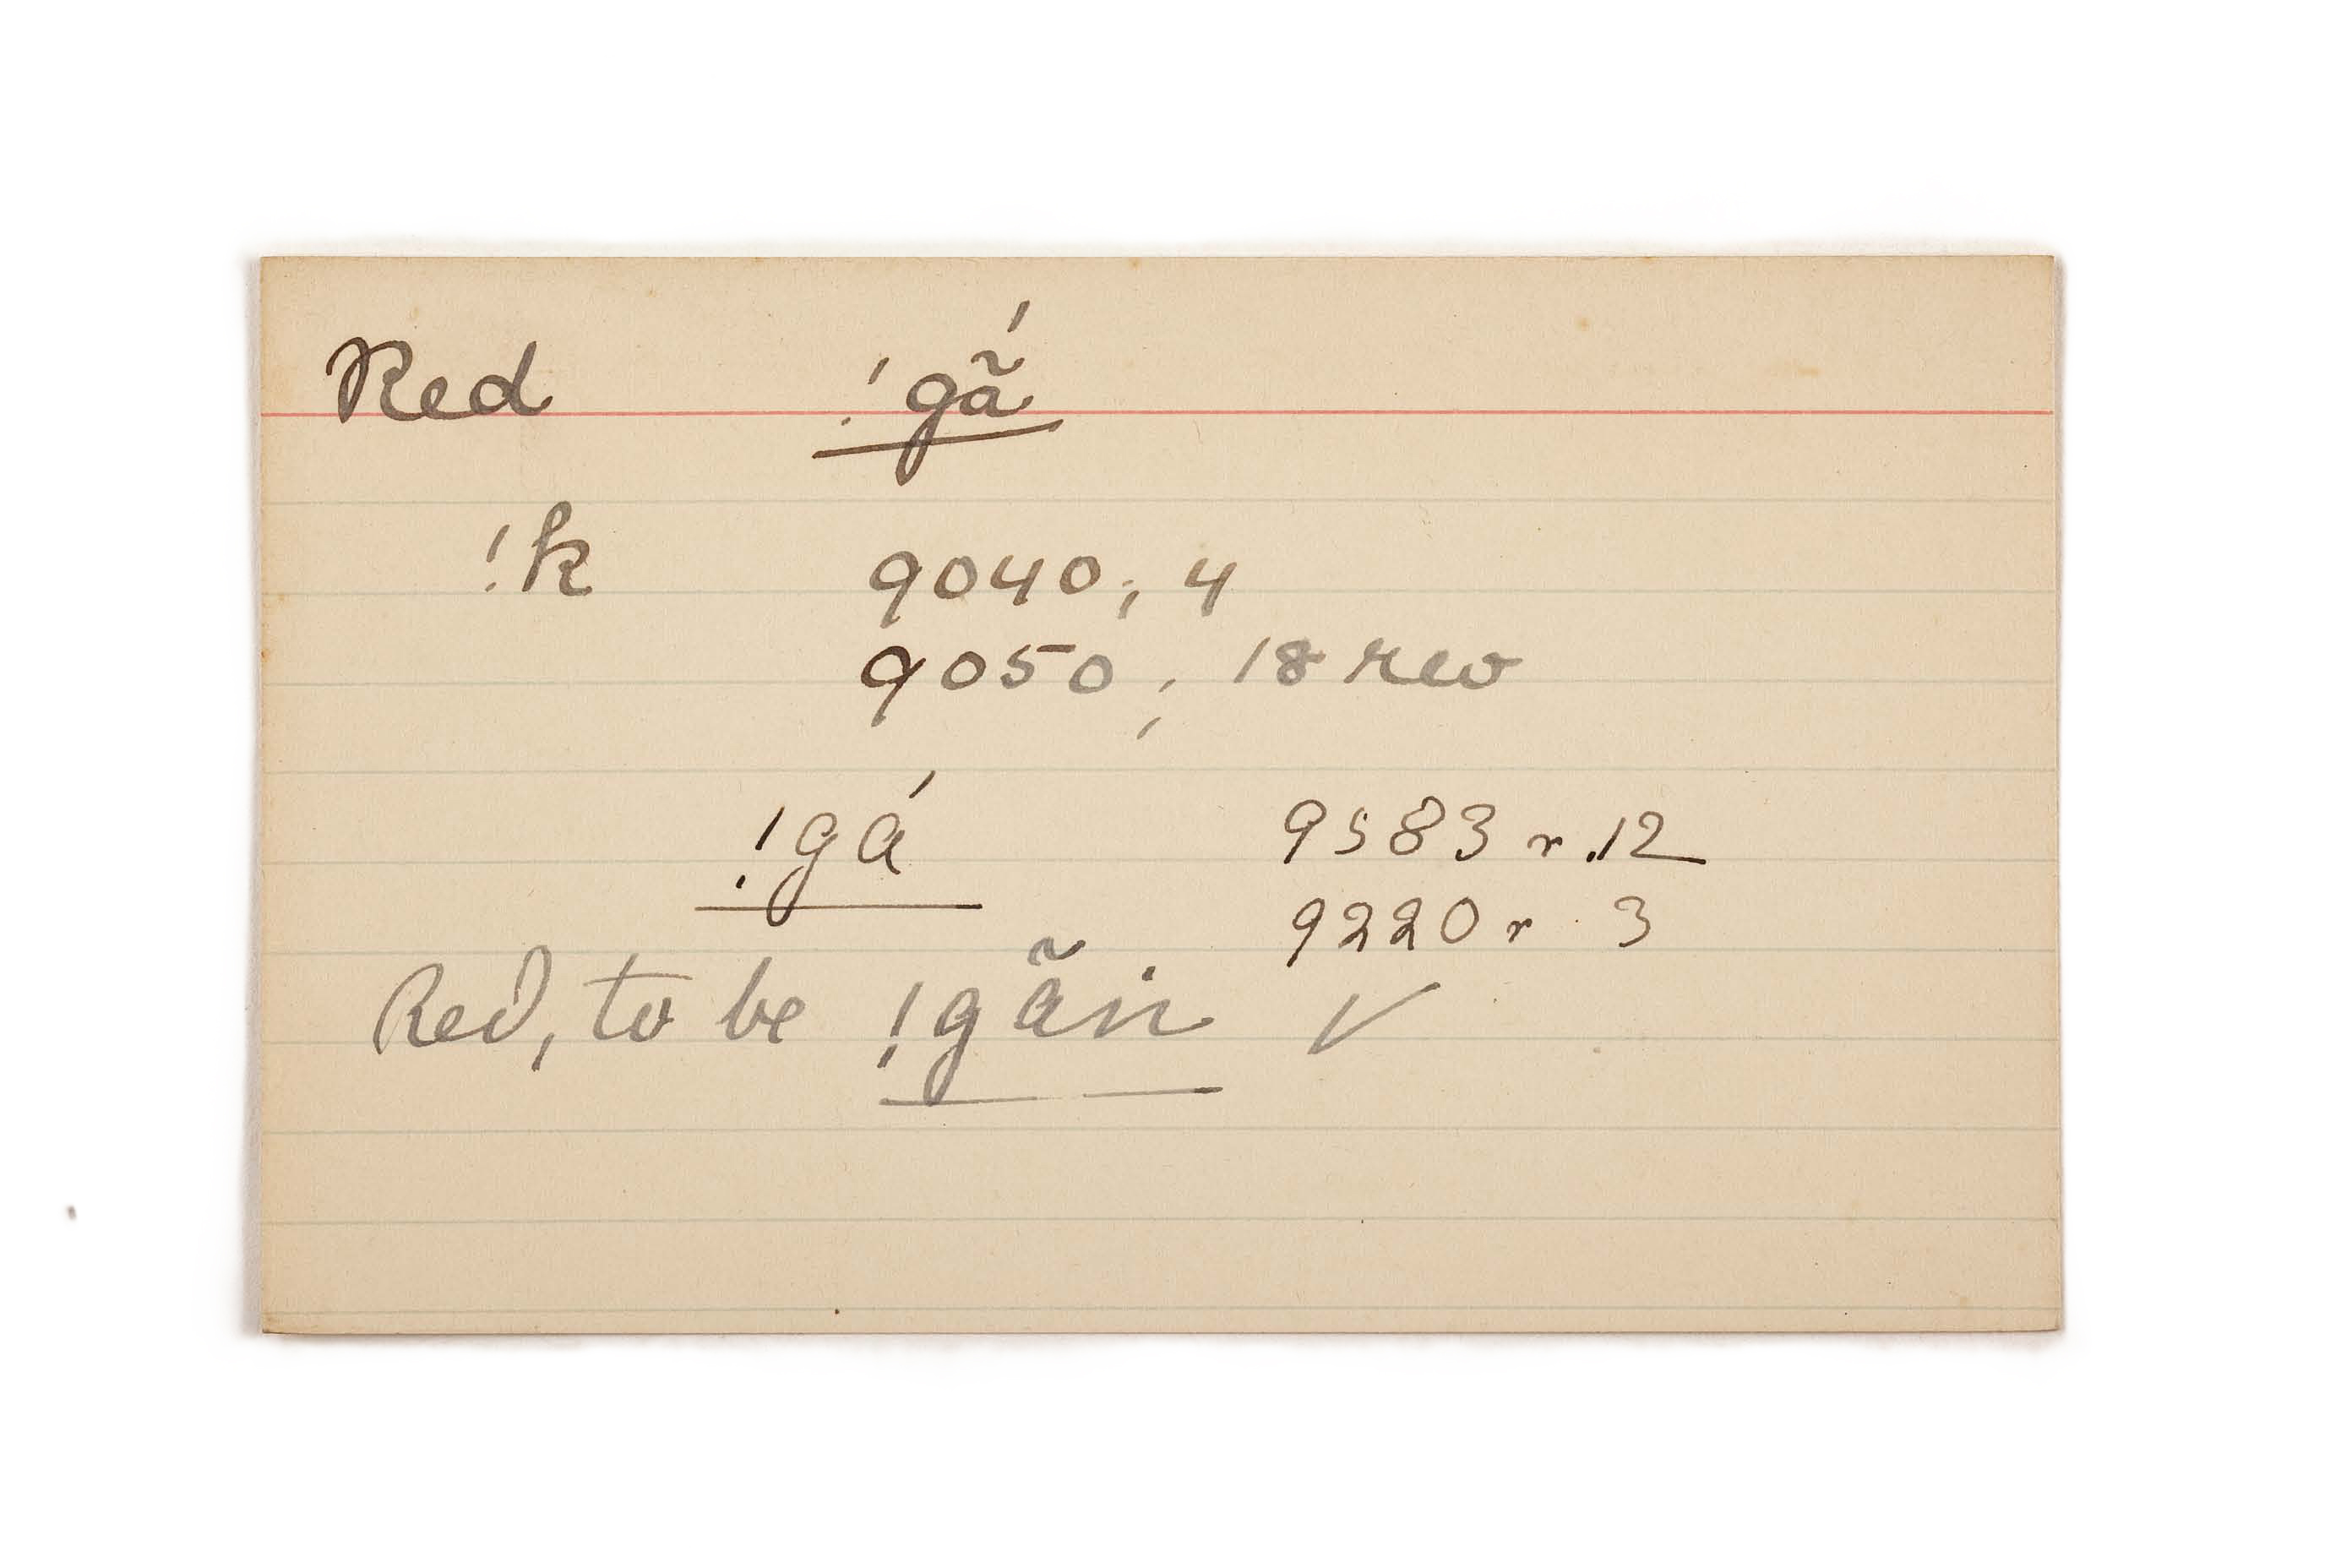 Red !gã́
!k 9040; 4
9050; 18 rev
!gá 9583 r. 12
9220 r 3
Red, to be !gãṅ ✓